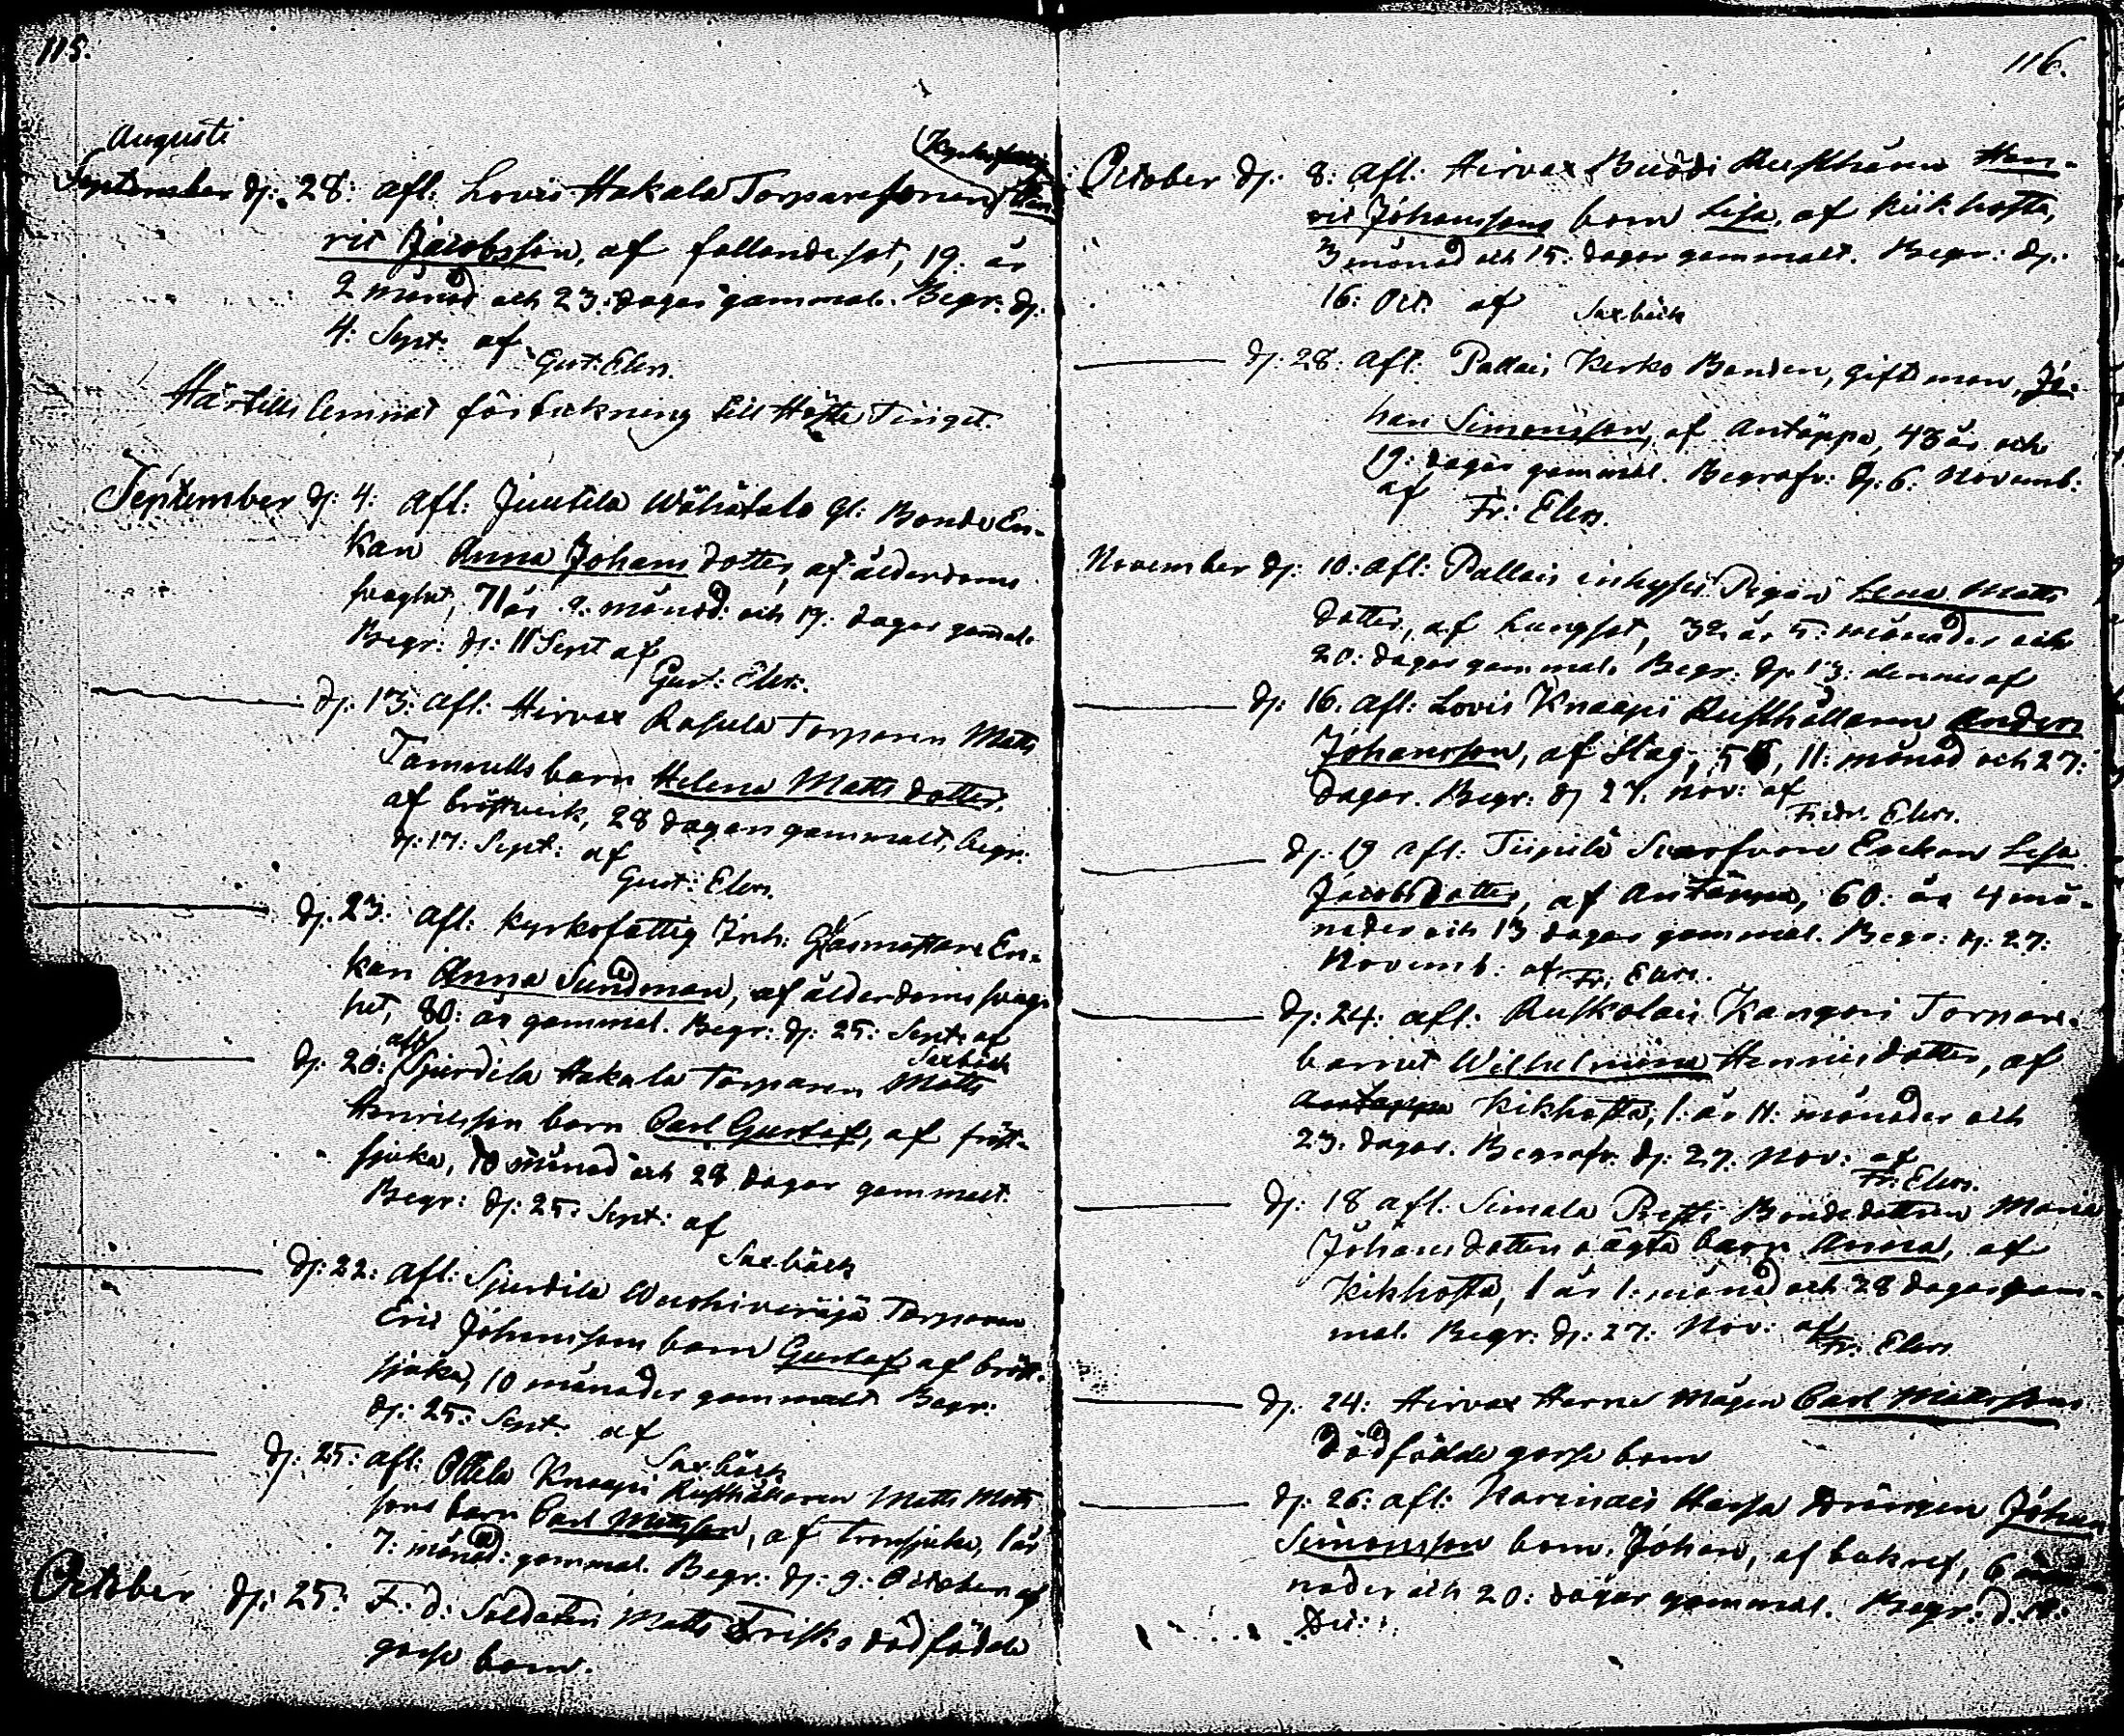 115.
Augusti
September dj. 28: afl: Lovis Hakala Torparesonen Hen-
ric Jacobsson, af fallandesot, 19: år
2 månad och 23: dagar gammal. Begr: dj.
4: Sept: af
Gust: Elers.
Härtills lemnat förteckning till Höste Tinget.
September dj: 4: afl: Juutila Wähätalo gl: Bonde En-
kan Anna Johans dotter, af ålderdoms
svaghet, 71 år 9: månad: och 19: dagar gamal.
Begr: dj: 11 Sept af
Gust: Elers.
dj: 13: afl: Hirvox Rasula Torparen Matts
Tamnulls barn Helena Matts dotter,
af bröstverk, 28 dagars gammalt, begr:
dj: 17: Sept: af
Gust: Elers.
dj. 23: afl: kyrkofattig Inh: Glasmästare En-
kan Anna Sundman, af ålderdoms svag-
het, 80: år gammal. Begr: dj: 25: Sept: af
Saxbäck
dj. 20: afl: Sjurdila Hakala Torparen Matts
Henricsson barn Carl Gustaf, af bröst-
sjuka, 10 månad och 28 dagar gammalt.
Begr: dj: 25: Sept: af
Saxbäck
dj: 22: afl: Sjurdila Wuohiveräjä Torparen
Eric Johanssons barn Gustaf af bröst-
sjuka, 10 månader gammalt Begr:
dj: 25: Sept: af
Saxbäck
dj. 25: afl: Ottila Knaapi Rusthållaren Matts Matts
sons barn Carl Mattsson, af bröstsjuka, 1 år
7: månad: gammal. Begr: dj: 9: October af
October dj: 25: F. d: Soldaten Matts Frisks dödfödde
gosse barn.
116.
October dj: 8: afl: Hirvox Buödi Rusthållaren Hen-
ric Johanssons barn Lisa, af kikhosta,
3 månad och 15: dagar gammalt. Begr: dj:
16: Oct: af Saxbäck
dj. 28: afl: Pallais Kerko Bonden, gift man, Jo-
han Simonsson, af Antäppa, 43 år och
19: dagar gammal. Begrafv: dj: 6: Novemb:
af Fr: Elers.
November dj: 10: afl: Pallais inhyses Pigan Lena Matts
dotter, af Lungsot, 32 år 5: månader och
20: dagar gammal. Begr: dj: 13: dennes af
dj: 16. afl: Lovis Knaapi Rusthållaren Anders
Johansson, af Slag, 11: månad och 27:
dagar. Begr: dj 27: Nov: af
Fredr. Elers.
dj: 19 afl: Tiipilä Enkan Lisa
Jacobsdotter, af Antäppa, 60: år 4 må-
nader och 13 dagar gammal. Begr: dj: 27:
Novemb: af Fr: Elers.
dj: 24: afl: Ruskolais Kangori Torpare-
barnet Wilhelmina Henricsdotter, af
Antäppa Kikhosta, 1: år 11: månader och
23. dagar. Begrafv: dj: 27: Nov: af
Fr: Elers.
dj: 18 afl: Simala Presti Bondedottren Maria
Johansdotters oägta barn Anna, af
Kikhosta, 1 år 1: månad och 28 dagar gam-
mal. Begr: dj: 27: Nov: af
Fr: Elers
dj. 24: Hirvox Harne Mågen Carl Mattssons
dödfödde gosse barn
dj: 26: afl: Karinais Hassa Drängen Johan
Simonsson barn. Johan, af bakref, 6 må-
nader och 20: dagar gammal. Begr: d. 10:
Dec: